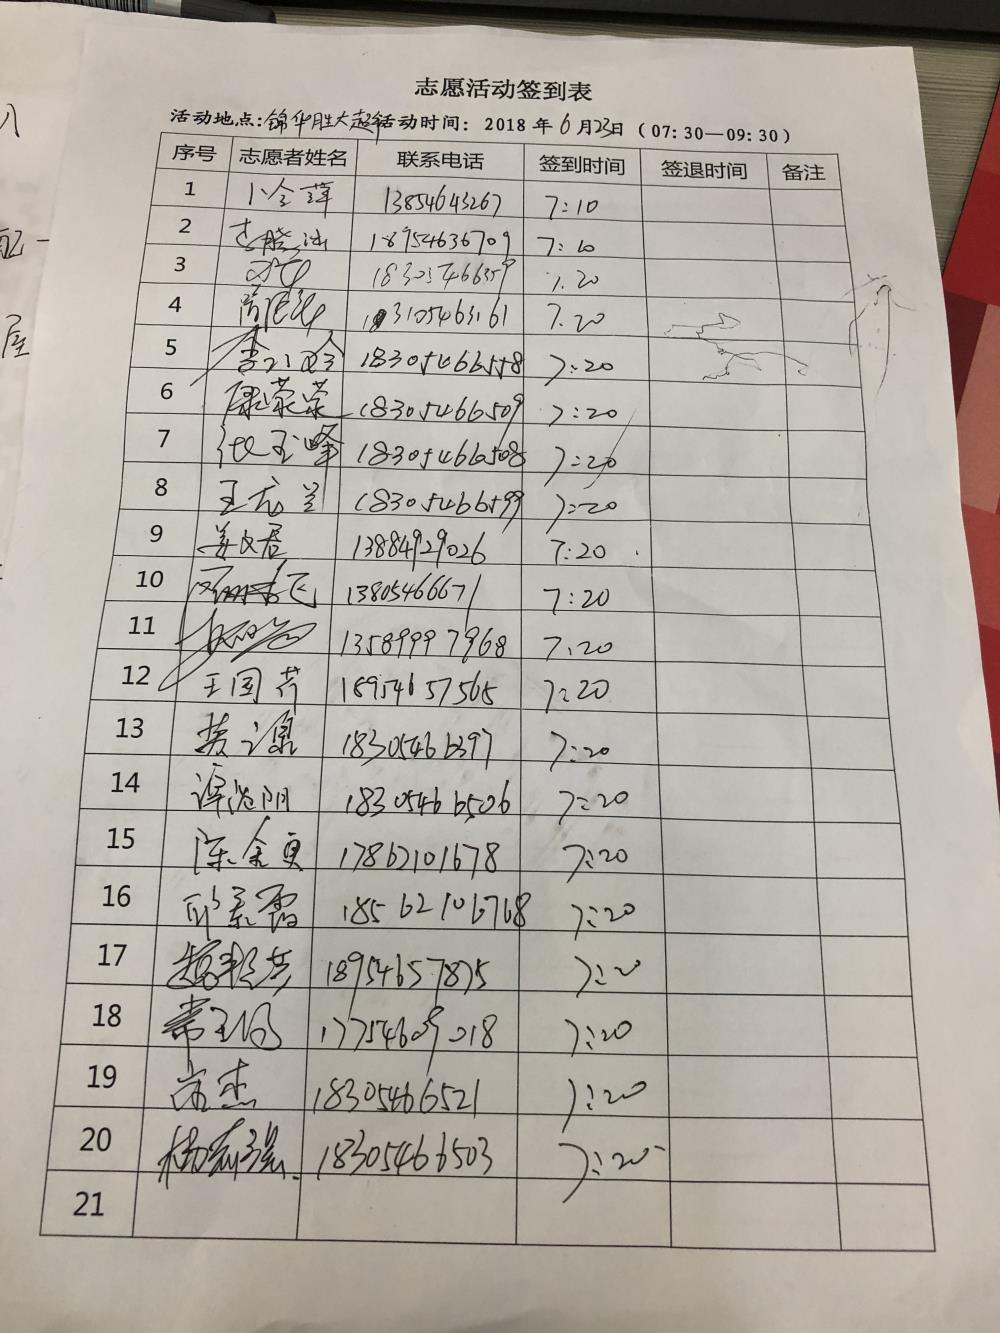 志愿活动签到表
活动地点:锦华胜大超市 活动时间: 2018 年 6 月 23日 ( 07:30—09:30 )
序号 志愿者姓名 联系电话 签到时间 签退时间 备注
1 13854643267 7:10
2 18954636709 7:10
3 18305466359 7.20
4 13105463161 7.20
5 18305466558 7:20
6 康荣荣 18305466509 7:20
7 张玉峰 18305466508 7:20
8 王尤兰 18305466599 7:20
9 姜文居 13884929026 7:20
10 13805466671 7:20
11 13589997968 7:20
12 王国芹 18954657565 7:20
13 18305466397 7:20
14 谭浩阴 18305466506 7:20
15 陈金更 17862101678 7:20
16 邱景霞 18562106768 7:20
17 18954657875 7:20
18 常玉 17754609018 7:20
19 宋杰 18305466521 7:20
20 杨 18305466503 7:20
21
配一
屋